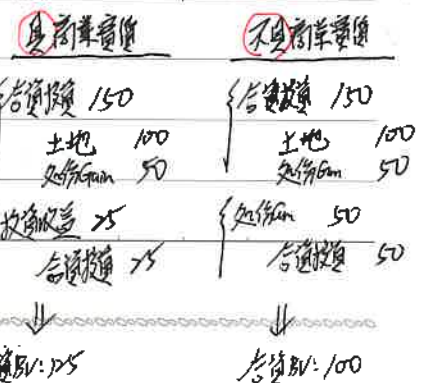 具商業實質
合資投資 150
土地 100
處份Gain 50
投資收益 25
合資投資 25
資BV: 125
不具商業實質
合資投資 150
土地 100
處份Gain 50
處份Gain 50
合資投資 50
合資BV: 100